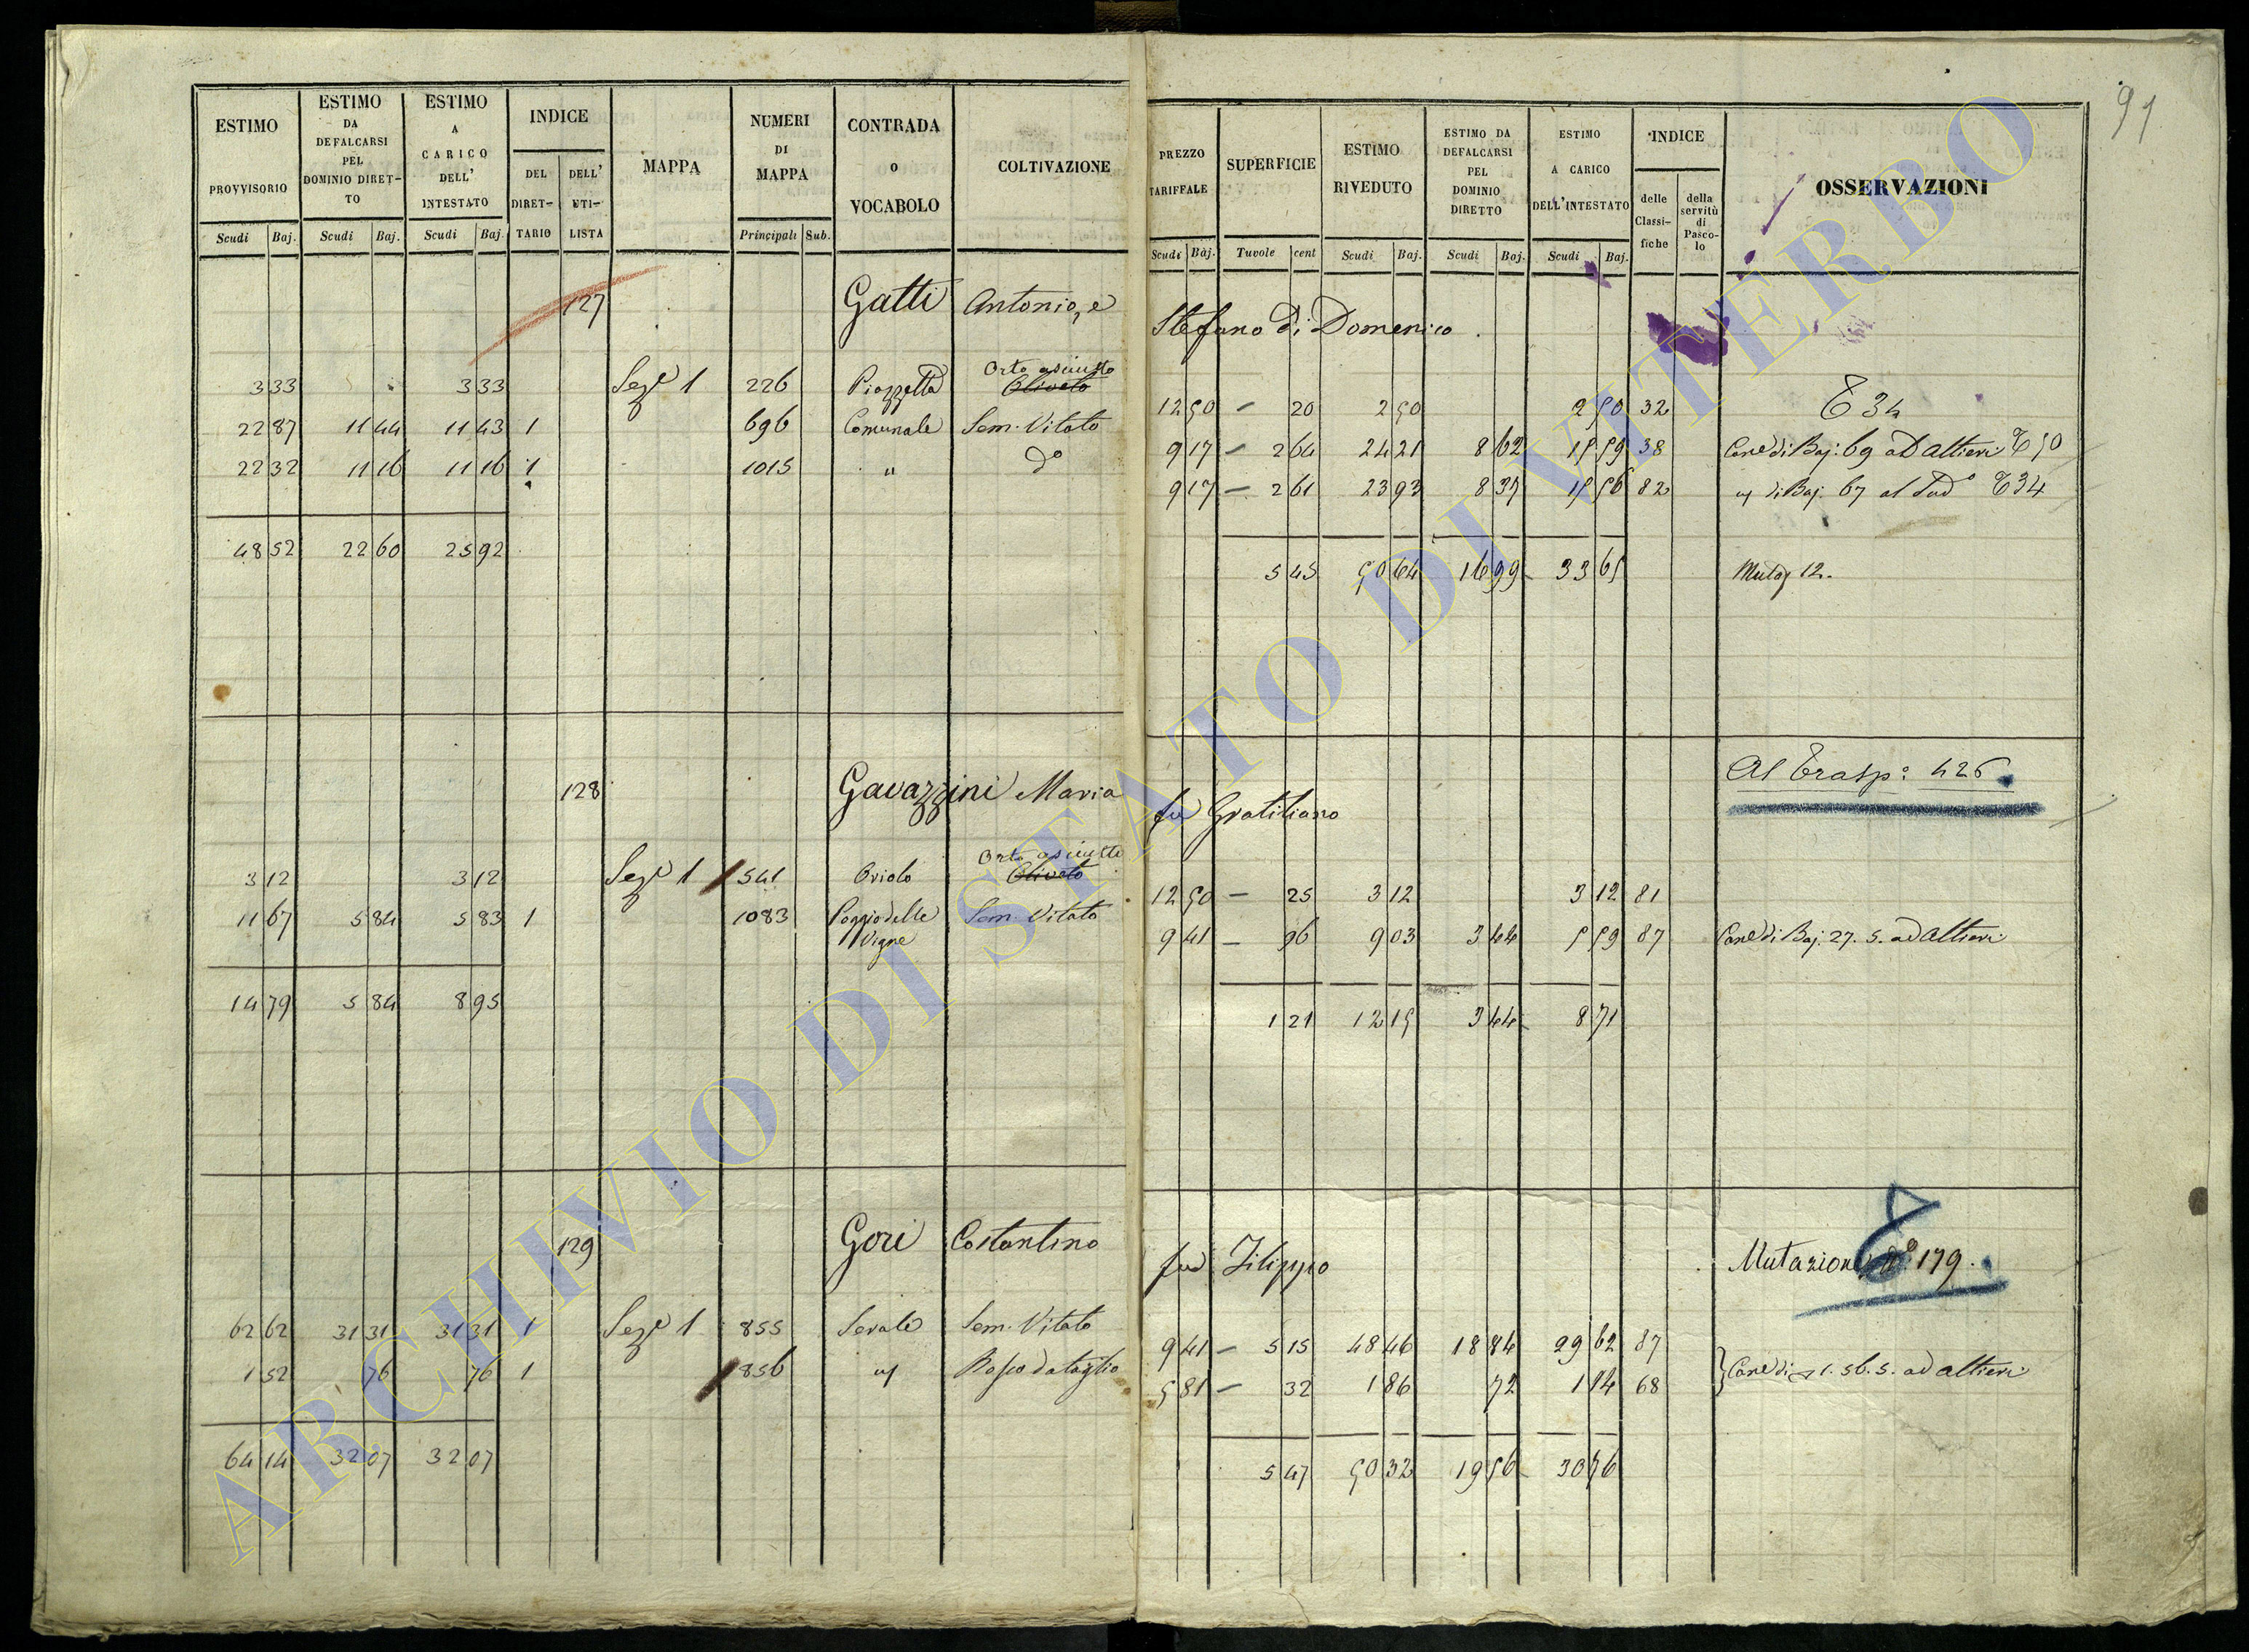 91
ESTIMO PROVVISORIO Scudi Baj.
ESTIMO DA DEFALCARSI PEL DOMINIO DIRET-TO Scudi Baj.
ESTIMO A CARICO DELL' INTESTATO Scudi Baj.
INDICE DEL DIRET-TARIO DELL' UTI-LISTA
MAPPA
NUMERI DI MAPPA Principali Sub.
CONTRADA o VOCABOLO
COLTIVAZIONE
PREZZO TARIFFALE Scudi Baj.
SUPERFICIE Tavole cent
ESTIMO RIVEDUTO Scudi Baj.
ESTIMO DA DEFALCARSI PEL DOMINIO DIRETTO Scudi Baj.
ESTIMO A CARICO DELL'INTESTATO Scudi Baj.
INDICE delle Classi-fiche della servitù di Pasco-lo
OSSERVAZIONI
127 Gatti Antonio, e Stefano di Domenico
Orto asciutto
3 33 3 33 Sezе 1 226 Piazzetta Oliveto 12 50 – 20 2 50 2 50 32 T 34
22 87 11 44 11 43 1 696 Comunale Sem. Vitato 9 17 – 2 64 24 21 8 62 15 59 38 Cane di Baj. 69 ad Altieri T 50
22 32 11 16 11 16 1 1015 " do 9 17 – 2 61 23 93 8 37 15 56 82 " di Baj. 67 al Sudo T 34
48 52 22 60 25 92 5 45 50 64 16 99 33 65 Mutaz 12.
Al Trasp: 426
128 Gavazzini Maria fu Gratiliano
Orto asciutto
3 12 3 12 Seze 1 541 Oriolo Oliveto 12 50 – 25 3 12 3 12 81
11 67 5 84 5 83 1 1083 Poggio delle Vigne Sem. Vitato 9 41 – 96 9 03 3 44 5 59 87 Cane di Baj. 27. 5. ad Altieri
14 79 5 84 8 95 1 21 12 15 3 44 8 71
129 Gori Costantino fu Filippo Mutazione No 179.
62 62 31 31 31 31 1 Seze 1 855 Serale Sem. Vitato 9 41 – 5 15 48 46 18 84 29 62 87
1 52 76 76 1 856 " Bosco da taglio 5 81 – 32 1 86 72 1 14 68 Cane di 1. 56. 5. ad Altieri
64 14 32 07 32 07 5 47 50 32 19 56 30 76
ARCHIVIO DI STATO DI VITERBO